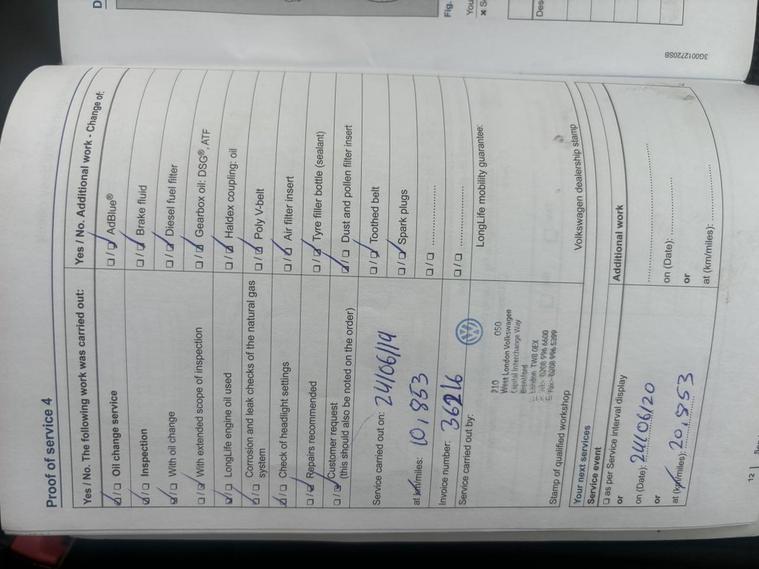 Proof of service 4
Yes / No. The following work was carried out:
☐ / ☐ Oil change service
☐ / ☐ Inspection
☐ / ☐ With oil change
☐ / ☐ With extended scope of inspection
☐ / ☐ LongLife engine oil used
☐ / ☐ Corrosion and leak checks of the natural gas
system
☐ / ☐ Check of headlight settings
☐ / ☐ Repairs recommended
☐ / ☐ Customer request
(this should also be noted on the order)
Service carried out on: 24/06/19
at km/miles: 10,853
Invoice number: 36216
Service carried out by:
210 050
West London Volkswagen
Capital Interchange Way
Brentford
London TW8 0EX
0208 996 6600
Stamp of qualified workshop
Yes / No. Additional work - Change of:
☐ / ☐ AdBlue®
☐ / ☐ Brake fluid
☐ / ☐ Diesel fuel filter
☐ / ☐ Gearbox oil: DSG®, ATF
☐ / ☐ Haldex coupling: oil
☐ / ☐ Poly V-belt
☐ / ☐ Air filter insert
☐ / ☐ Tyre filler bottle (sealant)
☐ / ☐ Dust and pollen filter insert
☐ / ☐ Toothed belt
☐ / ☐ Spark plugs
☐ / ☐ ....................
☐ / ☐ ....................
LongLife mobility guarantee:
Volkswagen dealership stamp
Your next services
Service event
☐ as per Service interval display
or
on (Date): 24/06/20
or
at (km/miles): 20,853
Additional work
....................
on (Date): ....................
or
at (km/miles): ....................
12
3G0012720SB
Fig.
You
Des